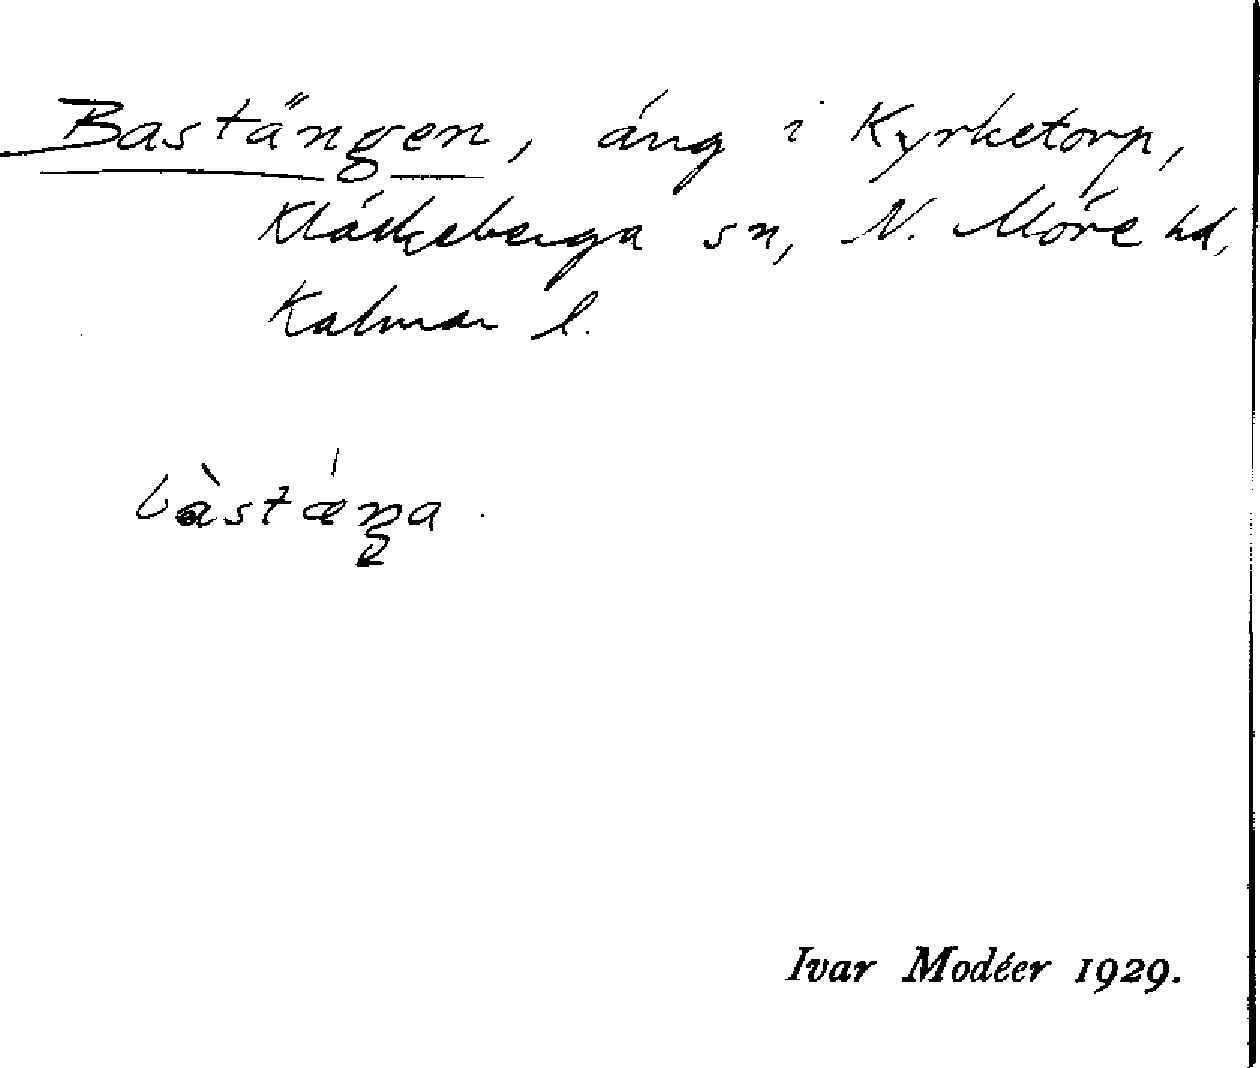 Bastängen, äng i Kyrketorp,
Kläckeberga sn, N. Möre hd,
Kalmar l.
bàstæ´ŋa.
Ivar Modéer 1929.